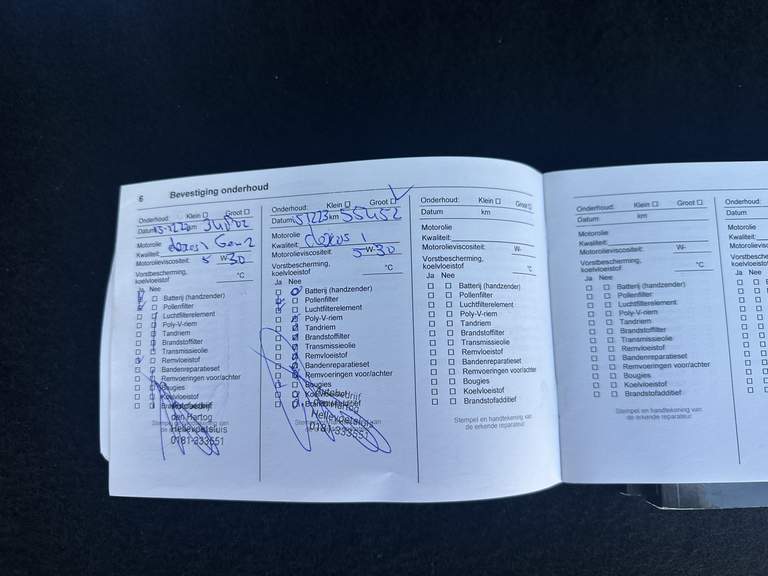 6 Bevestiging onderhoud
Onderhoud: Klein Groot
Datum km
Motorolie
Kwaliteit: dexos 1 Gen 2
Motorolieviscositeit: 5 W- 30
Vorstbescherming,
koelvloeistof °C
Ja Nee
Batterij (handzender)
Pollenfilter
Luchtfilterelement
Poly-V-riem
Tandriem
Brandstoffilter
Transmissieolie
Remvloeistof
Bandenreparatieset
Remvoeringen voor/achter
Bougies
Koelvloeistof
den Hartog
Hellevoetsluis
0181-333551
Onderhoud: Klein Groot
Datum km 55452
Motorolie
Kwaliteit: dexos 1
Motorolieviscositeit: 5 W- 30
Vorstbescherming,
koelvloeistof °C
Ja Nee
Batterij (handzender)
Pollenfilter
Luchtfilterelement
Poly-V-riem
Tandriem
Brandstoffilter
Transmissieolie
Remvloeistof
Bandenreparatieset
Remvoeringen voor/achter
Bougies
Koelvloeistof
Hartog
Hellevoetsluis
0181-333551
Onderhoud: Klein Groot
Datum km
Motorolie
Kwaliteit:
Motorolieviscositeit: W-
Vorstbescherming,
koelvloeistof °C
Ja Nee
Batterij (handzender)
Pollenfilter
Luchtfilterelement
Poly-V-riem
Tandriem
Brandstoffilter
Transmissieolie
Remvloeistof
Bandenreparatieset
Remvoeringen voor/achter
Bougies
Koelvloeistof
Brandstofadditief
Stempel en handtekening van
de erkende reparateur.
Onderhoud: Klein Groot
Datum km
Motorolie
Kwaliteit:
Motorolieviscositeit: W-
Vorstbescherming,
koelvloeistof °C
Ja Nee
Batterij (handzender)
Pollenfilter
Luchtfilterelement
Poly-V-riem
Tandriem
Brandstoffilter
Transmissieolie
Remvloeistof
Bandenreparatieset
Remvoeringen voor/achter
Bougies
Koelvloeistof
Brandstofadditief
Stempel en handtekening van
de erkende reparateur.
Onderhoud:
Datum
Motorolie
Kwaliteit: